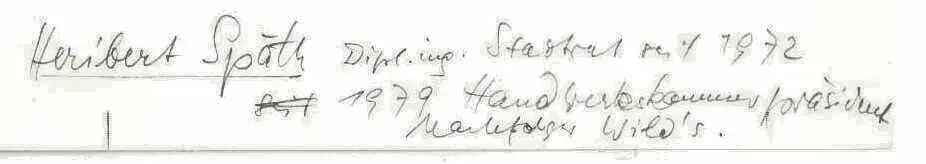 Heribert Späth Dipl.ing. Stadtrat seit 1972
seit 1979 Handwerkskammerpräsident
Nachfolger Wild's.